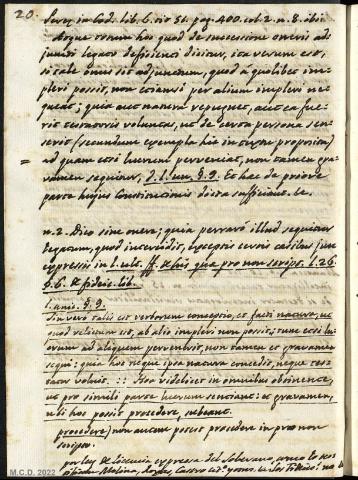 20.
Perez, in Cod. lib. 6. tit. 51. pag. 400. col. 2. n. 8. ibi:
Atque verum hoc quod de successione oneris ad
juncti legato deficienti dicitur, ita verum est,
si tale onus sit adjunctum, quod á quolibet im-
pleri possit, non etiamsi per alium impleri ne
queat; quia aut natura repugnet, aut ea fue
rit testatoris voluntas, ut de certa persona sen
serit (secundum exempla hic in textu proposita)
= ad quem etsi lucrum perveniat, non tamen gra
vamen sequitur, d. l. un. §. 9. Et hac de priore
parte hujus Constitutionis dicta sufficiant. &c.
n. 2. Dico sine onere; quia perraró illud sequitur
legatum, quod intercidit, exceptis certis casibus jure
expressis in l. ult. ff. de his quæ pro non script. l. 26.
§. 6. de fideic. lib.
l. unic. §. 9.
Sin vero talis est verborum conceptio, et facti natura, ut
quod relictum est, ab alio impleri non possit; tunc etsi lu
crum ad aliquem pervenerit, non tamen et gravamen
sequi: quia hoc neque ipsa natura concedit, neque tes
tator voluit. :: Ista videlicet in omnibus obtinente,
ut pro simili parte lucrum sentiant: et gravamen,
ubi hoc possit procedere, subeant.
procedere) non autem potest procedere in pro non
scriptis.
por ley de licencia expresa del Soberano,
Molina, Castro
M.C.D. 2022